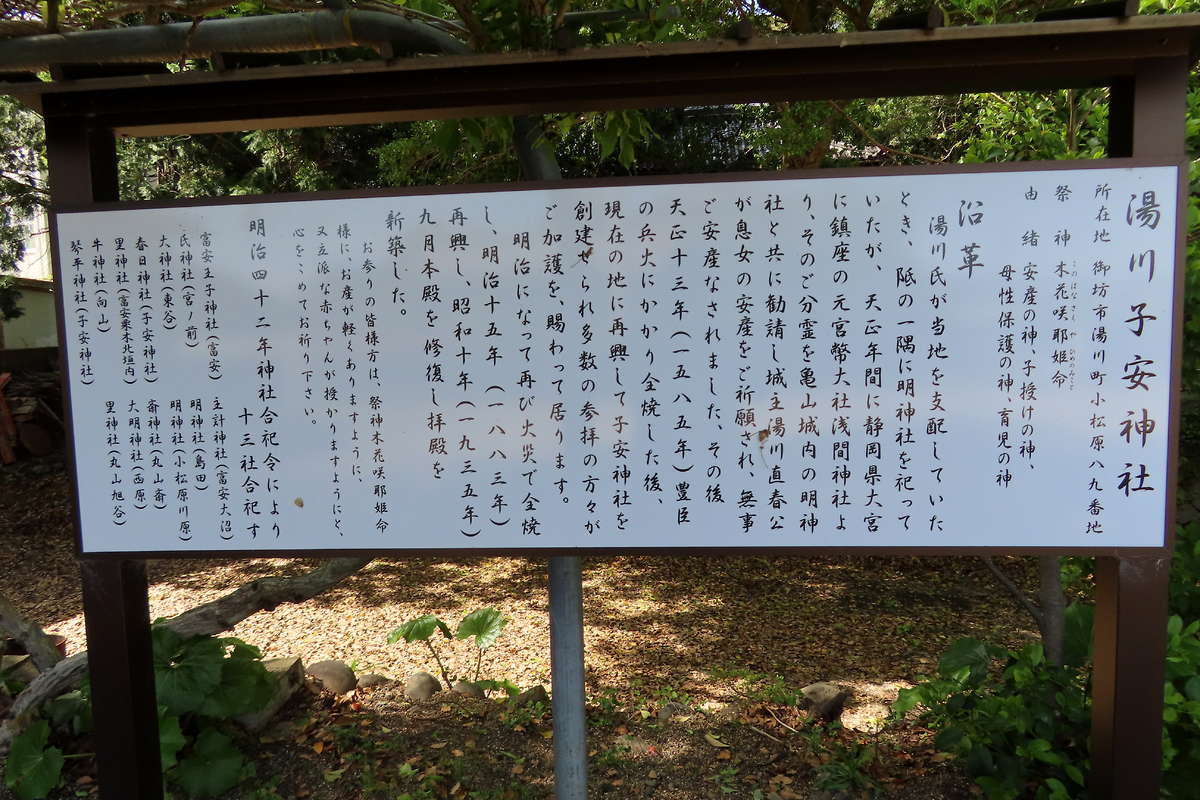 湯川子安神社
所在地 御坊市湯川町小松原八九番地
祭 神 木花咲耶姫命
このはなさくやひめのみこと
由 緒 安産の神、子授けの神、
母性保護の神、育児の神
沿革
湯川氏が当地を支配していた
とき、邸の一隅に明神社を祀って
いたが、天正年間に静岡県大宮
に鎮座の元官幣大社浅間神社よ
り、そのご分霊を亀山城内の明神
社と共に勧請し城主湯川直春公
が息女の安産をご祈願され、無事
ご安産なされました、その後
天正十三年(一五八五年)豊臣
の兵火にかかり全焼した後、
現在の地に再興して子安神社を
創建せられ多数の参拝の方々が
ご加護を、賜わって居ります。
明治になって再び火災で全焼
し、明治十五年(一八八三年)
再興し、昭和十年(一九三五年)
九月本殿を修復し拝殿を
新築した。
お参りの皆様方は、祭神木花咲耶姫命
様に、お産が軽くありますように、
又立派な赤ちゃんが授かりますようにと、
心をこめてお祈り下さい。
明治四十二年神社合祀令により
十三社合祀す
富安王子神社(富安) 主計神社(富安大沼)
氏神社(宮ノ前) 明神社(島田)
大神社(東谷) 明神社(小松原川原)
春日神社(子安神社) 斎神社(丸山斎)
里神社(富安栗木北垣内) 大明神社(西原)
牛神社(向山) 里神社(丸山旭谷)
琴平神社(子安神社)